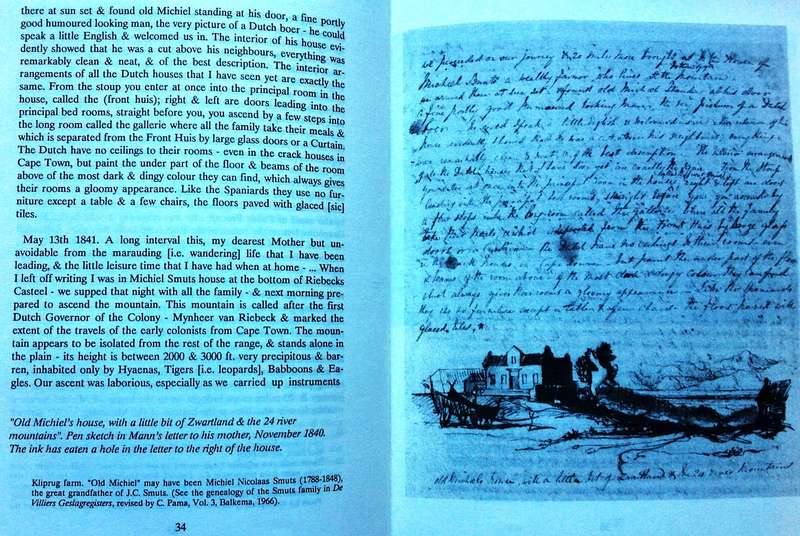 there at sun set & found old Michiel standing at his door, a fine portly
good humoured looking man, the very picture of a Dutch boer - he could
speak a little English & welcomed us in. The interior of his house evi-
dently showed that he was a cut above his neighbours, everything was
remarkably clean & neat, & of the best description. The interior ar-
rangements of all the Dutch houses that I have seen yet are exactly the
same. From the stoup you enter at once into the principal room in the
house, called the (front huis); right & left are doors leading into the
principal bed rooms, straight before you, you ascend by a few steps into
the long room called the gallerie where all the family take their meals &
which is separated from the Front Huis by large glass doors or a Curtain.
The Dutch have no ceilings to their rooms - even in the crack houses in
Cape Town, but paint the under part of the floor & beams of the room
above of the most dark & dingy colour they can find, which always gives
their rooms a gloomy appearance. Like the Spaniards they use no fur-
niture except a table & a few chairs, the floors paved with glaced [sic]
tiles.
May 13th 1841. A long interval this, my dearest Mother but un-
avoidable from the marauding [i.e. wandering] life that I have been
leading, & the little leisure time that I have had when at home - ... When
I left off writing I was in Michiel Smuts house at the bottom of Riebecks
Casteel - we supped that night with all the family - & next morning pre-
pared to ascend the mountain. This mountain is called after the first
Dutch Governor of the Colony - Mynheer van Riebeck & marked the
extent of the travels of the early colonists from Cape Town. The moun-
tain appears to be isolated from the rest of the range, & stands alone in
the plain - its height is between 2000 & 3000 ft. very precipitous & bar-
ren, inhabited only by Hyaenas, Tigers [i.e. leopards], Babboons & Ea-
gles. Our ascent was laborious, especially as we carried up instruments
"Old Michiel's house, with a little bit of Zwartland & the 24 river
mountains". Pen sketch in Mann's letter to his mother, November 1840.
The ink has eaten a hole in the letter to the right of the house.
Kliprug farm. "Old Michiel" may have been Michiel Nicolaas Smuts (1788-1848),
the great grandfather of J.C. Smuts. (See the genealogy of the Smuts family in De
Villiers Geslagregisters, revised by C. Pama, Vol. 3, Balkema, 1966).
34
we proceeded on our journey & 20 miles more brought us to the House of
Michiel Smuts a wealthy farmer who lives at the mountain
good humoured looking man, the very picture of a Dutch
boer
remarkably clean & neat, & of the best description. The interior
a few steps into the long room called the gallerie where all the family
take their meals & which is separated from the Front Huis by large glass
& beams of the room above of the most dark & dingy colour they can find
which always gives their rooms a gloomy appearance. Like the Spaniards
they use no furniture except a table & a few chairs the floors paved with
glaced tiles.
old Michiels house with a little bit of Zwartland & the 24 river mountains